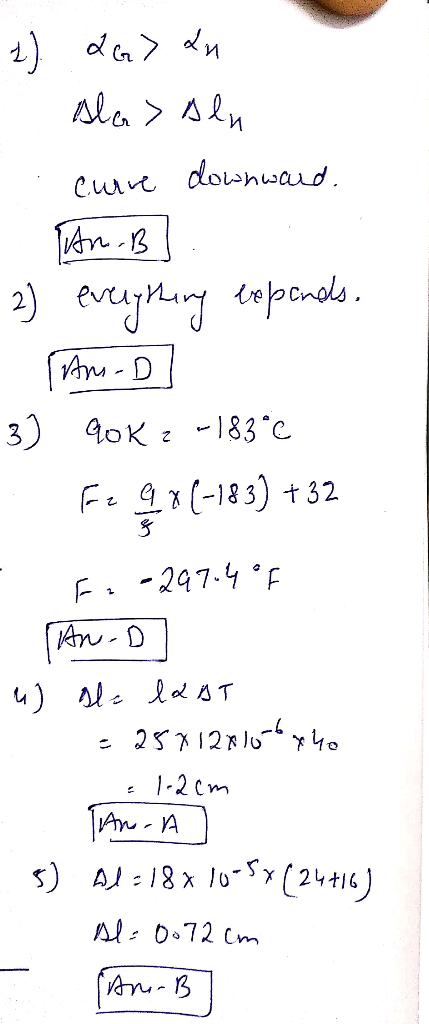 1) αG > αH
ΔlG > ΔlH
curve downward.
An - B
2) everything expands.
Ans - D
3) 90K = -183°C
F = 9/5 x (-183) + 32
F = -297.4 °F
An - D
4) Δl = lαΔT
= 25 x 12 x 10-6 x 40
= 1.2 cm
An - A
5) Δl = 18 x 10-5 x (24+16)
Δl = 0.72 cm
Ans - B